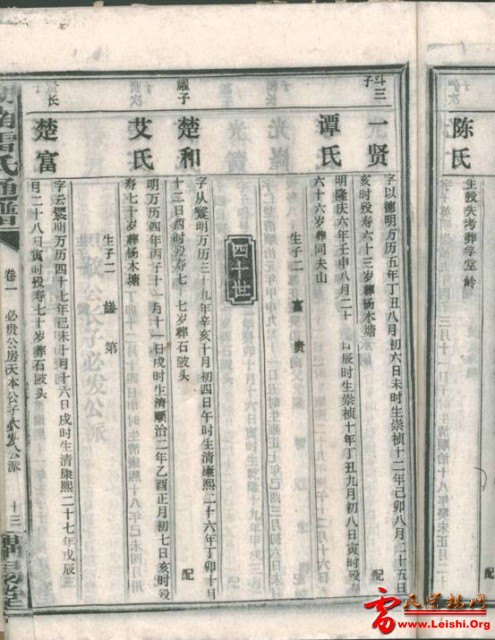 陈氏
生殁失考葬学堂岭
斗三子
一贤
字以德明万历五年丁丑八月初六日未时生崇祯十二年己卯八月二十五日
亥时殁寿六十三岁葬杨木塘
配
谭氏
明隆庆六年壬申八月二十 日辰时生崇祯十年丁丑九月初八日寅时殁
六十六岁葬同夫山
生子二 富 贵
四十世
雇子
楚和
字从 明万历三十九年辛亥十月初四日午时生清康熙二十六年丁卯十月
十二日酉时殁寿七 七岁葬石陂头
配
艾氏
明万历四年丙子十一月十一日戌时生清顺治二年乙酉正月初七日亥时殁
寿七十岁葬杨木塘
生子二 第
长
楚富
字云 明万历四十七年己未十月十六日戌时生清康熙二十七年戊辰
月二十八日寅时殁寿七十岁葬石陂头
雷氏通谱
卷一
必贵公房天本公子必发公派
十三
雷氏宗族网
www.Leishi.Org